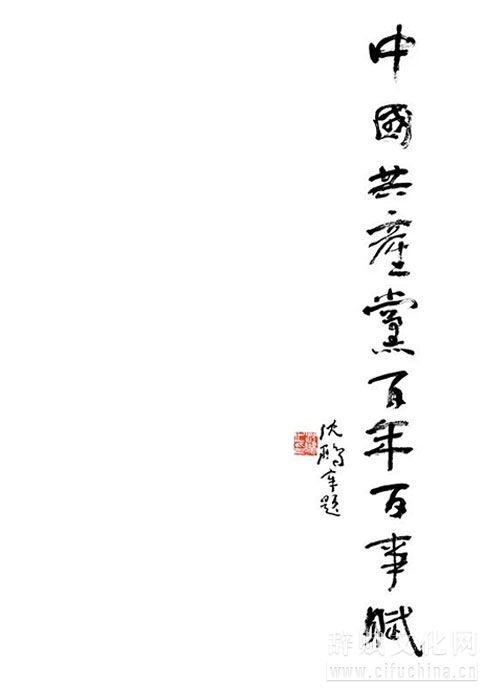 中國共產黨百年百事賦
沈鵬年題
辞赋文化网
www.cifuchina.com